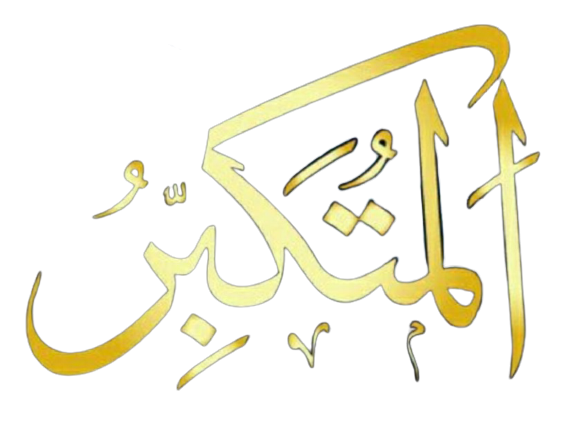 الْمُتَكَبِّرُ